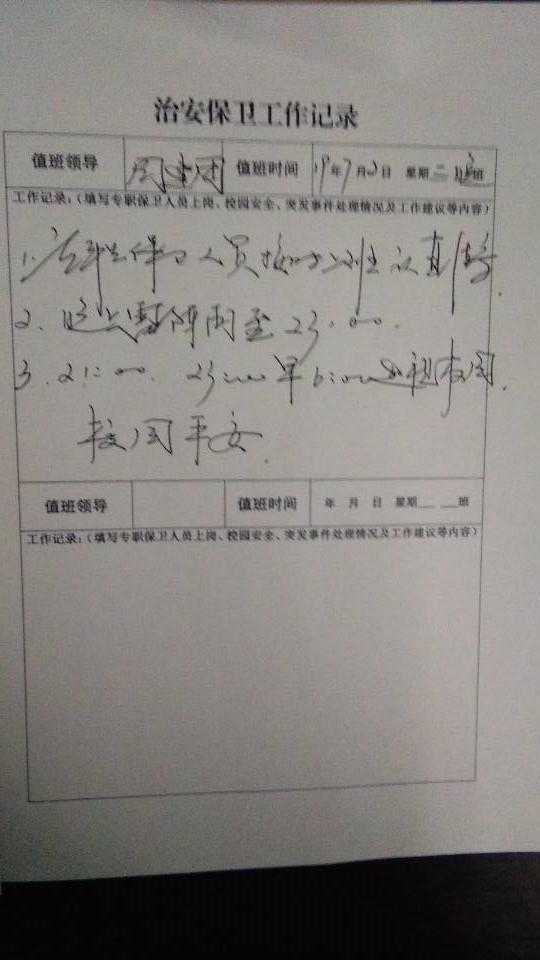 治安保卫工作记录
值班领导 周建团 值班时间 19年7月2日 星期二 晚班
工作记录:(填写专职保卫人员上岗、校园安全、突发事件处理情况及工作建议等内容)
1. 保卫人员按时上班认真
2. 晚上雷阵雨至23:00.
3. 21:00. 23:00 早6:00 校园.
校园平安.
值班领导 值班时间 年 月 日 星期__ __班
工作记录:(填写专职保卫人员上岗、校园安全、突发事件处理情况及工作建议等内容)